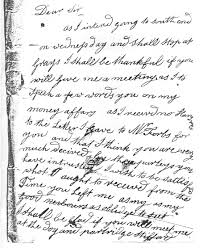 Dear Sir
as I intend going to south end
on wednesday and Shall Stop at
Grays I Shall be thankful if you
will give me a meeting as I to
Speak a few words you on my
money affairs as I received no
to the letter I gave to Mr for
you and that I think you are very
much deceived for the you
have I wish to be
what I aught to received from the
time you left me as my
good neabours as obledge to put
I shall be glad if you will meet me
at the Dog and partridge Stifford